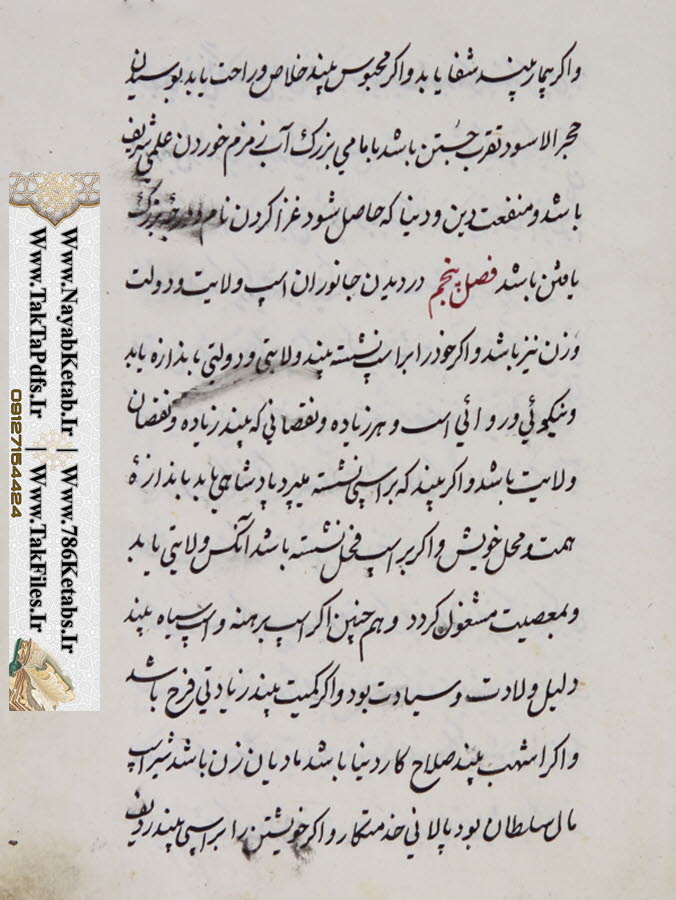 واکر بیمار بیند شفا یابد واکر محبوس بیند خلاص وراحت یابد بوسیدن
حجر الاسود تقرب جُستن باشد بامامی بزرک آب زمزم خوردن علمی شریف
باشد ومنفعت دین ودنیا که حاصل شود غزا کردن نام ودرجهٔ بزرک
یافتن باشد فصل پنجم در دیدن جانوران اسپ ولایت ودولت
وزن نیز باشد واکر خود را بر اسپ نشسته بیند ولایتی ودولتی باندازه یابد
ونیکوئی وروائی است وهر زیاده ونقصانی که بیند زیاده ونقصان
ولایت باشد واکر بیند که بر اسپی نشسته میرد پادشاهی یابد باندازهٔ
همت ومحل خویش واکر بر اسپ فحل نشسته باشد آنکس ولایتی یابد
وبمعصیت مشغول کردد وهم چنین اکر اسپ برهنه واسپ سیاه بیند
دلیل ولادت وسیادت بود واکر کمیت بیند زیادتی فرح باشد
واکر اشهب بیند صلاح کار دنیا باشد مادیان زن باشد شیر اسپ
مال سلطان بود پالانی خدمتکار واکر خویشتن را بر اسپی بیند ردیف
Www.NayabKetab.Ir | Www.786Ketabs.Ir
Www.TakTaPdfs.Ir | Www.TakFiles.Ir
09127154424